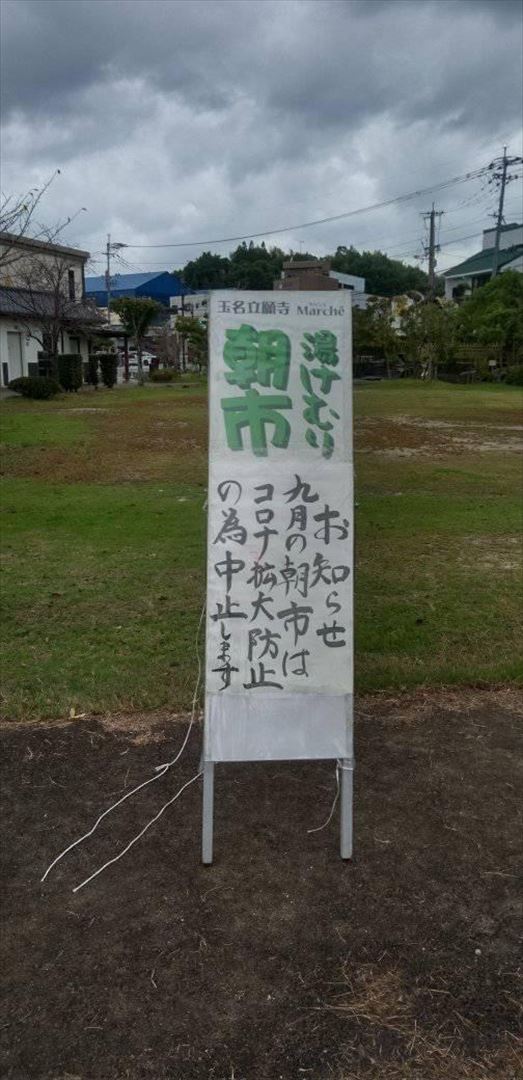 玉名立願寺 Marché
湯けむり
朝市
お知らせ
九月の朝市は
コロナ拡大防止
の為中止します